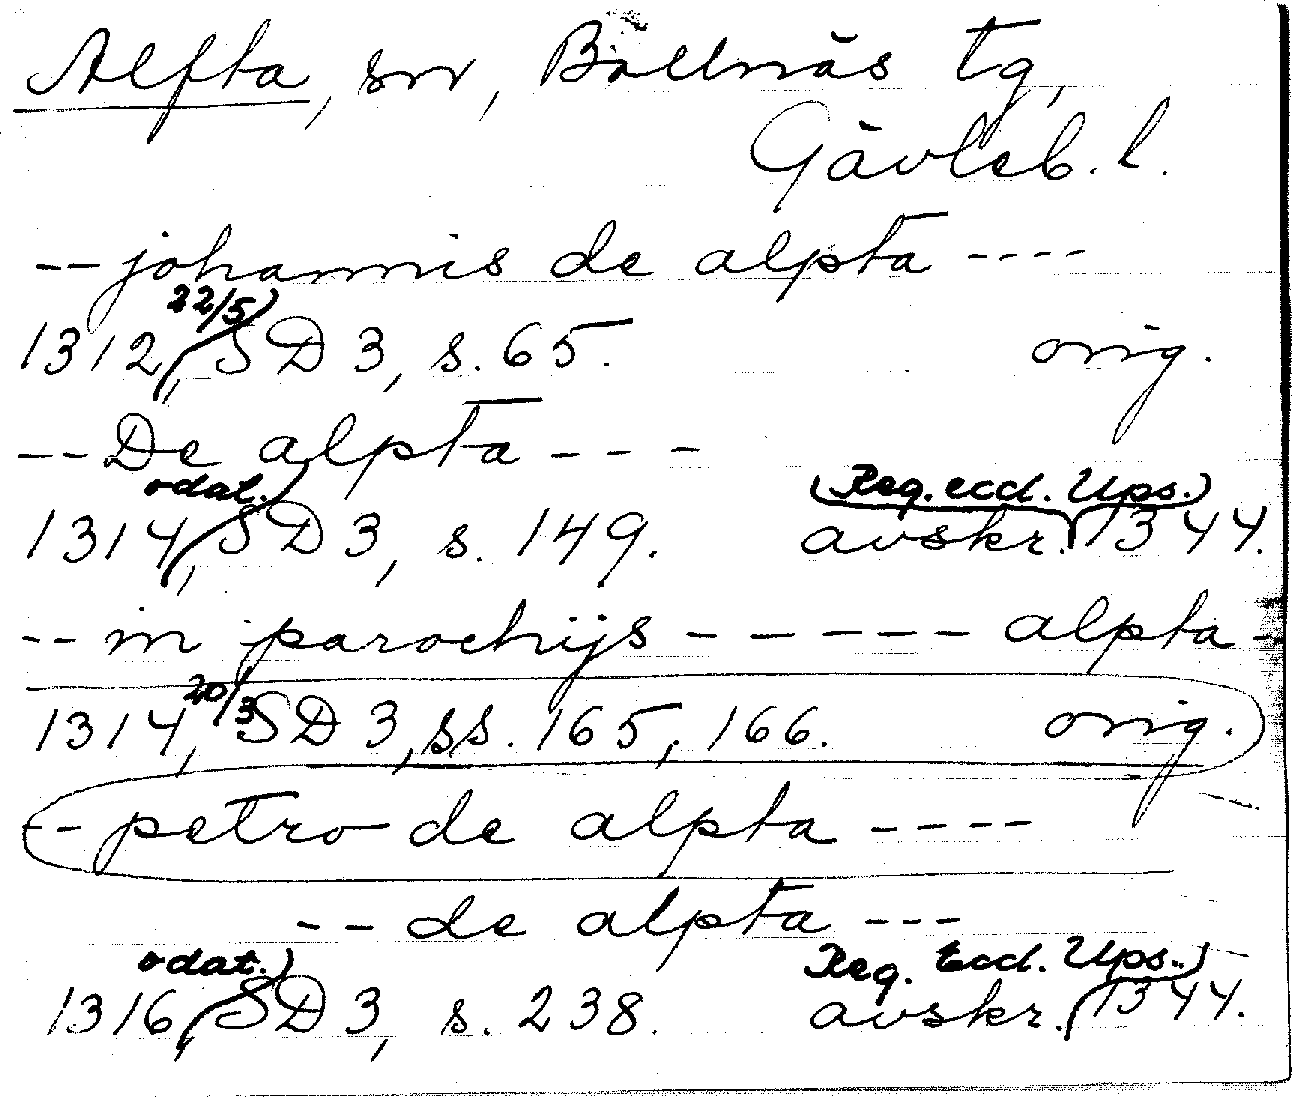 Alfta, sn, Bollnäs tg,
Gävleb. l.
-- johannis de alpta ----
1312, (22/5) SD 3, s. 65. orig.
-- De alpta ---
1314, (odat.) SD 3, s. 149. avskr. (Reg. eccl. Ups.) 1344.
-- in parochijs ------ alpta -
1314, 20/3 SD 3, ss. 165, 166. orig.
-- petro de alpta ----
-- de alpta ---
1316, (odat.) SD 3, s. 238. avskr. (Reg. Eccl. Ups.) 1344.